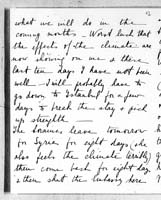 what we will do in the
coming months - Worst luck that
the effects of the climate are
now showing on me & these
last ten days I have not been
well - I will probably have to
go down to Istanbul for a few
days to break the stay & pick
up strength -
The Loraines leave tomorrow
for Syria for eight days, she
also feels the climate terribly
then come back for eight days
& then shut the Embassy here